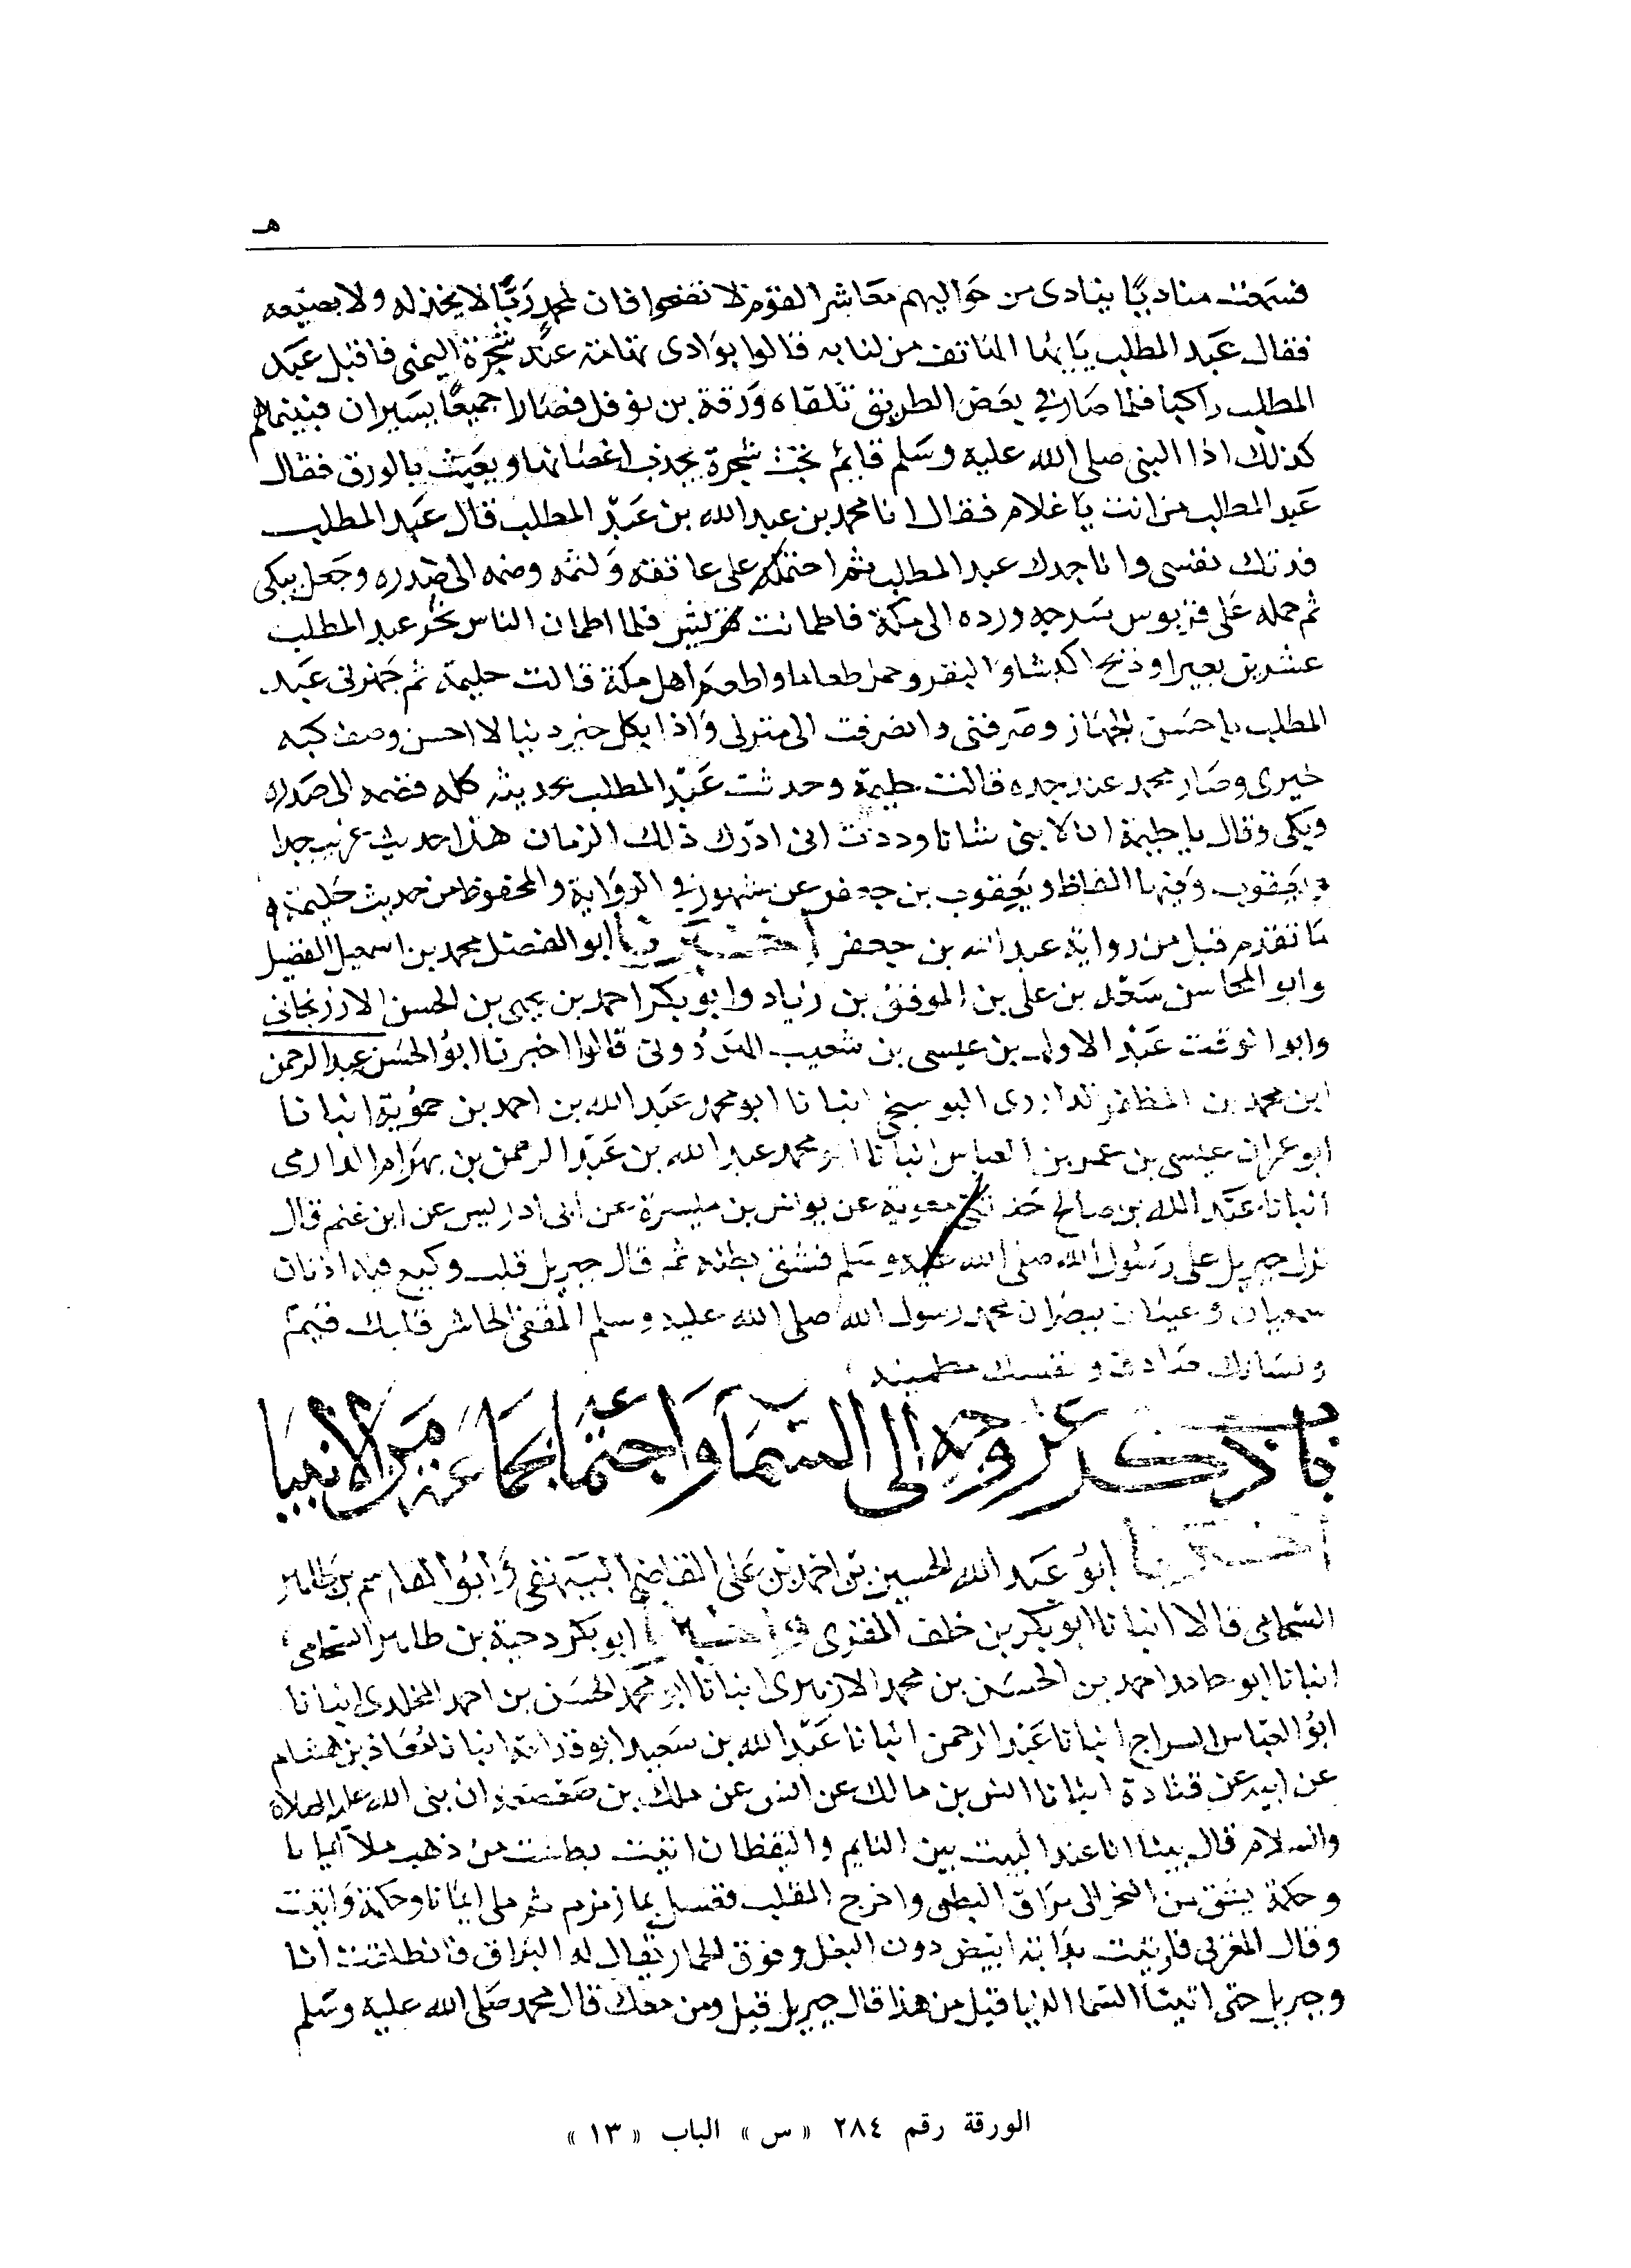 هـ
فسمعت مناديًا ينادى من حواليهم معاشر القوم لا تضجوا فان لمحمد ربًّا لا يخذله ولا يضيعه
فقال عبد المطلب يايها الهاتف من لنا به قالوا بوادى تهامة عند شجرة اليمنى فاقبل عبد
المطلب راكبا فلما صار في بعض الطريق تلقاه ورقة بن نوفل فصارا جميعًا يسيران فبينما هم
كذلك اذا النبى صلى الله عليه وسلم قايم تحت شجرة يجذب اغصانها ويعبث بالورق فقال
عبد المطلب من انت يا غلام فقال انا محمد بن عبد الله بن عبد المطلب قال عبد المطلب
فدتك نفسى وانا جدك عبد المطلب ثم احتمله على عاتقه ولثمه وضمه الى صدره وجعل يبكى
ثم حمله على قربوس سرجه ورده الى مكة فاطمانت قريش فلما اطمان الناس نحر عبد المطلب
عشرين بعيرا وذبح اكبشا والبقر وحمل طعاما واطعم اهل مكة قالت حليمة ثم جهزنى عبد
المطلب باحسن الجهاز وصرفنى وانصرفت الى منزلى واذا بكل خير دنيا لا احسن وصف كنه
خيرى وصار محمد عند جده قالت حليمة وحدثت عبد المطلب بحديثه كله فضمه الى صدره
وبكى وقال يا حليمة ان لابنى شانا وددت انى ادرك ذلك الزمان هذا حديث غريب جدا
وفيها الفاظ ويعقوب بن جعفر غير مشهور في الرواية والمحفوظ من حديث حليمة
ما تقدم قبل من رواية عبد الله بن جعفر اخبرنا ابو الفضل محمد بن اسمعيل الفضيلى
وابو المحاسن سعد بن على بن الموفق بن زياد وابو بكر احمد بن يحيى بن الحسن الاذربجانى
وابو الوقت عبد الاول بن عيسى بن شعيب قالوا اخبرنا ابو الحسن عبد الرحمن
ابن محمد بن المظفر الداودى البوسنجى انبانا ابو محمد عبد الله بن احمد بن حموية انبانا
ابو عمران عيسى بن عمر بن العباس انبانا ابو محمد عبد الله بن عبد الرحمن بن بهرام الدارمى
انبانا عبد الله بن صالح حدثنى معوية عن يونس بن ميسرة عن ابى ادريس عن ابن غنم قال
نزل جبريل على رسول الله صلى الله عليه وسلم فشق بطنه ثم قال جبريل قلب وكيع فيه اذنان
سميعان وعينان بصيران محمد رسول الله صلى الله عليه وسلم المقفى الحاشر قلبك قيم
ولسانك صادق ونفسك مطمينة
باب ذكر عروجه الى السما واجتماعه بجماعة من الانبيا
اخبرنا ابو عبد الله الحسين بن احمد بن على القاضى البيهقى وابو القاسم بن طاهر
الشحامى قالا انبانا ابو بكر بن خلف المغربى اخبرنا ابو بكر وجيه بن طاهر الشحامى
انبانا ابو حامد احمد بن الحسن بن محمد الازهرى انبانا ابو محمد الحسن بن احمد المخلدى انبانا
ابو العباس السراج انبانا عبد الرحمن انبانا عبد الله بن سعيد ابو قدامة انبانا معاذ بن هشام
عن ابيه عن قتادة انبانا انس بن مالك عن انس عن ملك بن صعصعة ان نبى الله عليه الصلاة
والسلام قال بينا انا عند البيت بين النايم واليقظان اتيت بطست من ذهب ملا ايمانا
وحكمة يشق من النحر الى مراق البطن واخرج القلب فغسل بما زمزم ثم ملى ايمانا وحكمة واتيت
وقال المغربى فاتيت بدابة ابيض دون البغل وفوق الحمار يقال له البراق فانطلقت انا
وجبريل حتى اتينا السما الدنيا قيل من هذا قال جبريل قيل ومن معك قال محمد صلى الله عليه وسلم
الورقة رقم ٢٨٤ « س » الباب « ١٣ »